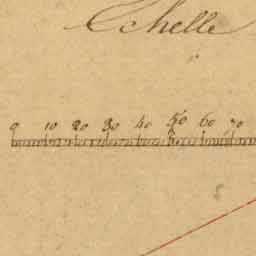 Echelle
0 10 20 30 40 50 60 70